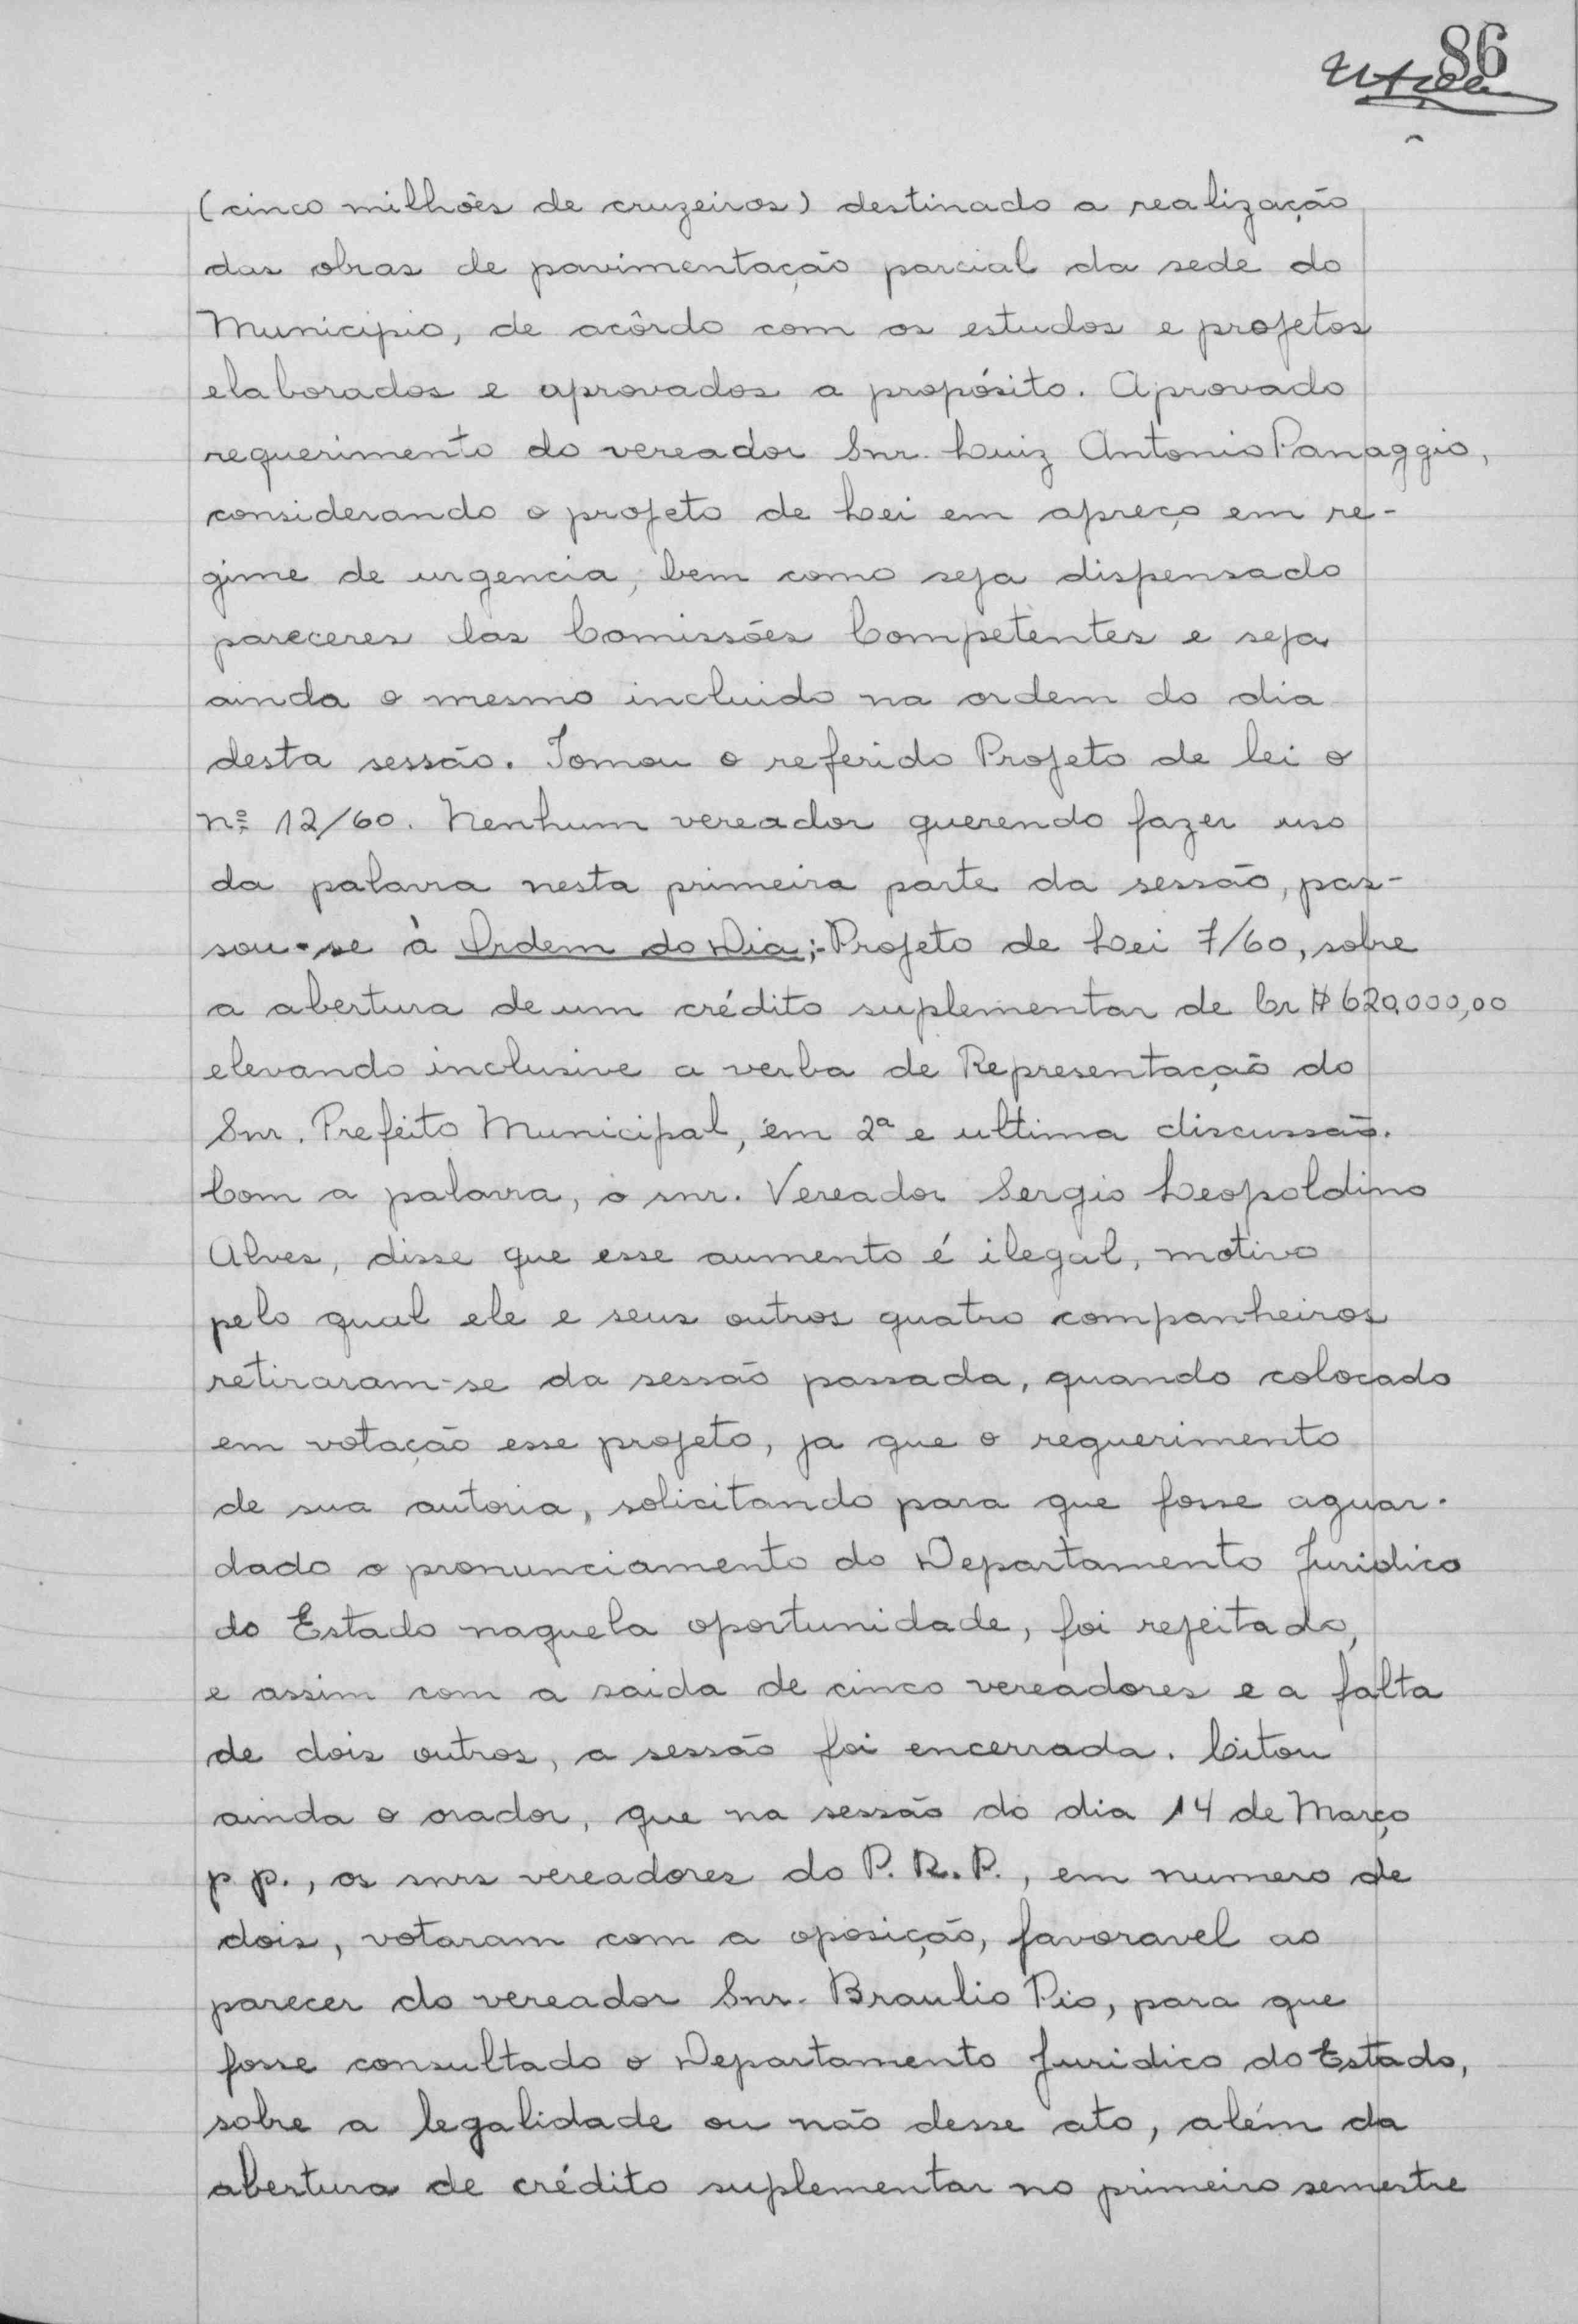 86
(cinco milhões de cruzeiros) destinado a realização
das obras de pavimentação parcial da sede do
Municipio, de acôrdo com os estudos e projetos
elaborados e aprovados a propósito. Aprovado
requerimento do vereador Snr. Luiz Antonio Panaggio,
considerando o projeto de Lei em apreço em re-
gime de urgencia, bem como seja dispensado
pareceres das Comissões Competentes e seja
ainda o mesmo incluido na ordem do dia
desta sessão. Tomou o referido Projeto de lei o
nº 12/60. Nenhum vereador querendo fazer uso
da palavra nesta primeira parte da sessão, pas-
sou-se à Ordem do Dia;- Projeto de Lei 7/60, sobre
a abertura de um crédito suplementar de Cr$ 620.000,00
elevando inclusive a verba de Representação do
Snr. Prefeito Municipal, em 2ª e ultima discussão.
Com a palavra, o snr. Vereador Sergio Leopoldino
Alves, disse que esse aumento é ilegal, motivo
pelo qual ele e seus outros quatro companheiros
retiraram-se da sessão passada, quando colocado
em votação esse projeto, ja que o requerimento
de sua autoria, solicitando para que fosse aguar-
dado o pronunciamento do Departamento Juridico
do Estado naquela oportunidade, foi rejeitado,
e assim com a saida de cinco vereadores e a falta
de dois outros, a sessão foi encerrada. Citou
ainda o orador, que na sessão do dia 14 de Março
p p., os snrs vereadores do P. R. P., em numero de
dois, votaram com a oposição, favoravel ao
parecer do vereador Snr. Braulio Pio, para que
fosse consultado o Departamento Juridico do Estado,
sobre a legalidade ou não desse ato, além da
abertura de crédito suplementar no primeiro semestre